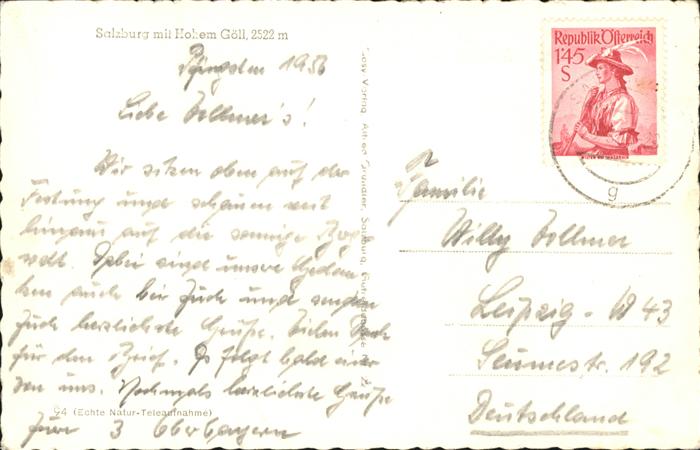 Salzburg mit Hohem Göll, 2522 m
Pfingsten 1956
Liebe Vollmer's!
Wir sitzen oben auf der
Festung und schauen weit
hinaus auf die sonnige
Dabei sind unsere Gedan-
ken auch bei Euch und senden
Euch herzlichste Grüße. Vielen Dank
für den Brief. Es folgt bald einer
von uns. Nochmals herzlichste Grüße
94 (Echte Natur-Teleaufnahme)
3 Oberbayern
Republik Österreich
1'45
S
g
Familie
Willy Vollmer
Leipzig - W 43
Seumestr. 192
Deutschland